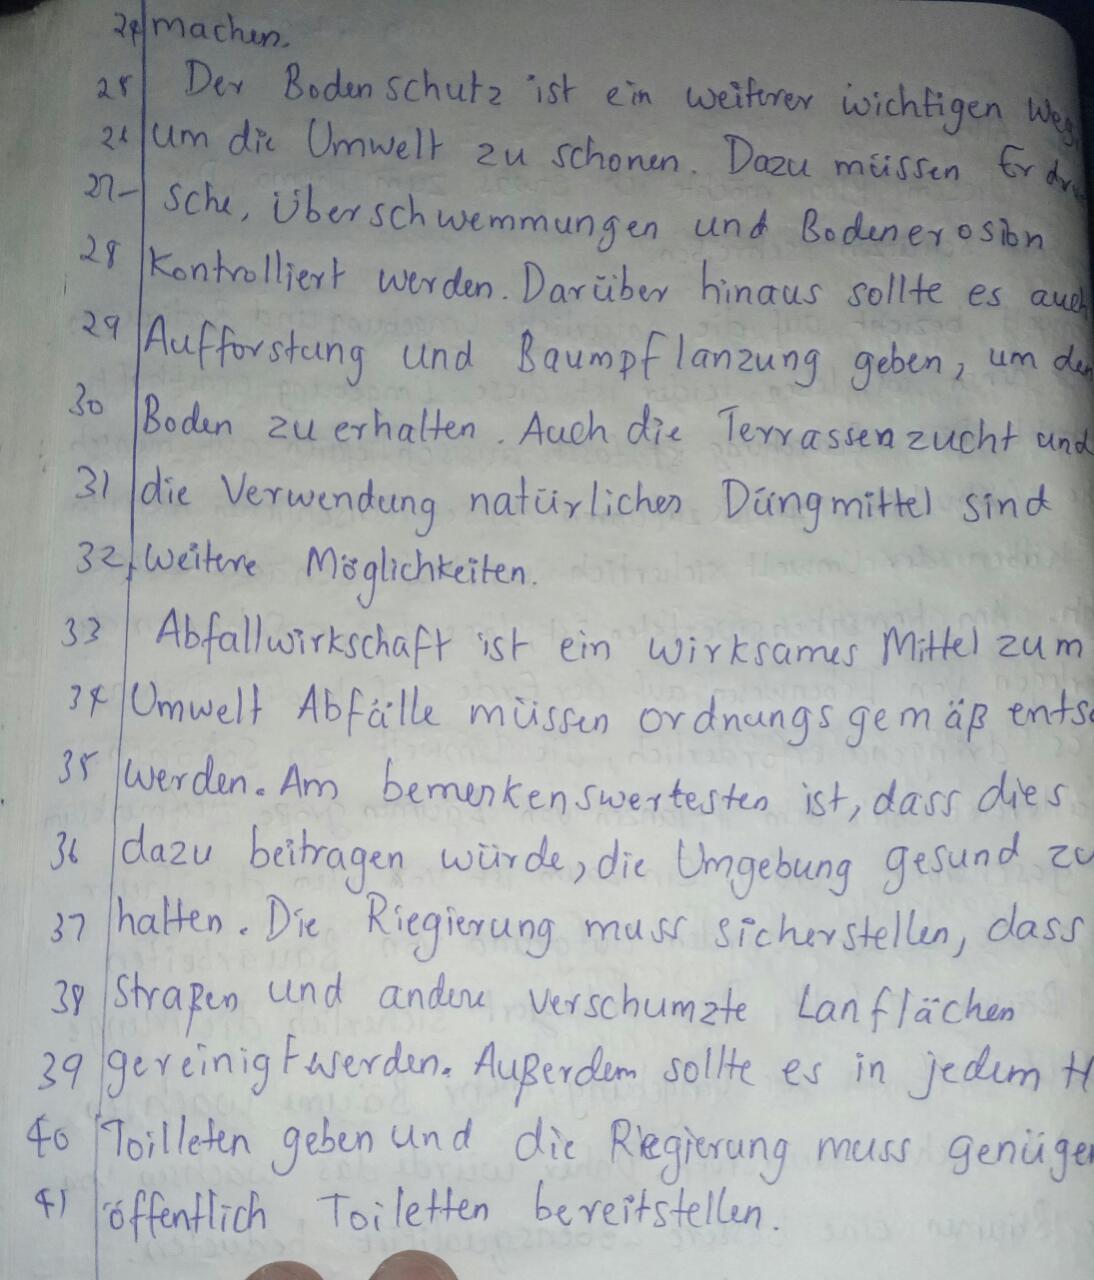 24 machen.
25 Der Bodenschutz ist ein weiterer wichtigen Weg,
26 um die Umwelt zu schonen. Dazu müssen Erdru
27- sche, Überschwemmungen und Bodenerosion
28 Kontrolliert werden. Darüber hinaus sollte es auch
29 Aufforstung und Baumpflanzung geben, um den
30 Boden zu erhalten. Auch die Terrassenzucht und
31 die Verwendung natürlicher Düngmittel sind
32 weitere Möglichkeiten.
33 Abfallwirkschaft ist ein wirksames Mittel zum
34 Umwelt Abfälle müssen ordnungsgemäß entso
35 werden. Am bemerkenswertesten ist, dass dies
36 dazu beitragen würde, die Umgebung gesund zu
37 halten. Die Riegierung muss sicherstellen, dass
38 Straßen und andere verschumzte Lanflächen
39 gereinigt werden. Außerdem sollte es in jedem H
40 Toilleten geben und die Riegierung muss genügen
41 öffentlich Toiletten bereitstellen.